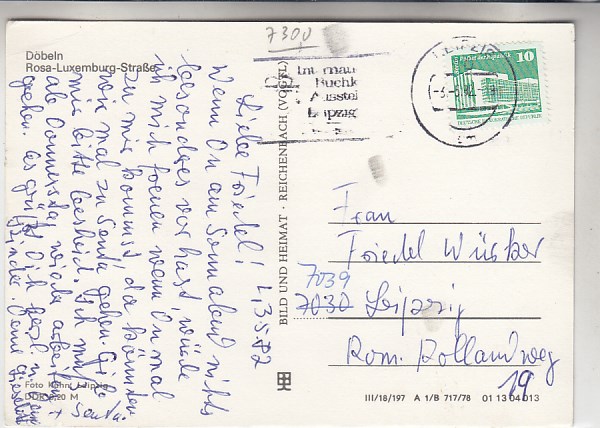 7300
Döbeln
Rosa-Luxemburg-Straße
Liebe Friedel! L, 3.5.82
Wenn Du am Sonnabend nichts
besonderes vor hast, würde
ich mich freuen wenn Du mal
zu mir kommst, da könnten
wir mal zu Senta gehen. Gib
mir bitte bescheid. Ich muß
ab Donnerstag wieder arbeiten
gehen. es grüßt Dich herzl.
Foto Kühn, Leipzig
DDR 0,20 M
BILD UND HEIMAT · REICHENBACH (VOGTL)
Leipzig
LEIPZIG
10
Frau
Friedel Wüsker
7039
7030 Leipzig
Rom. Rolland weg
19
III/18/197 A 1/B 717/78 01 13 04 013